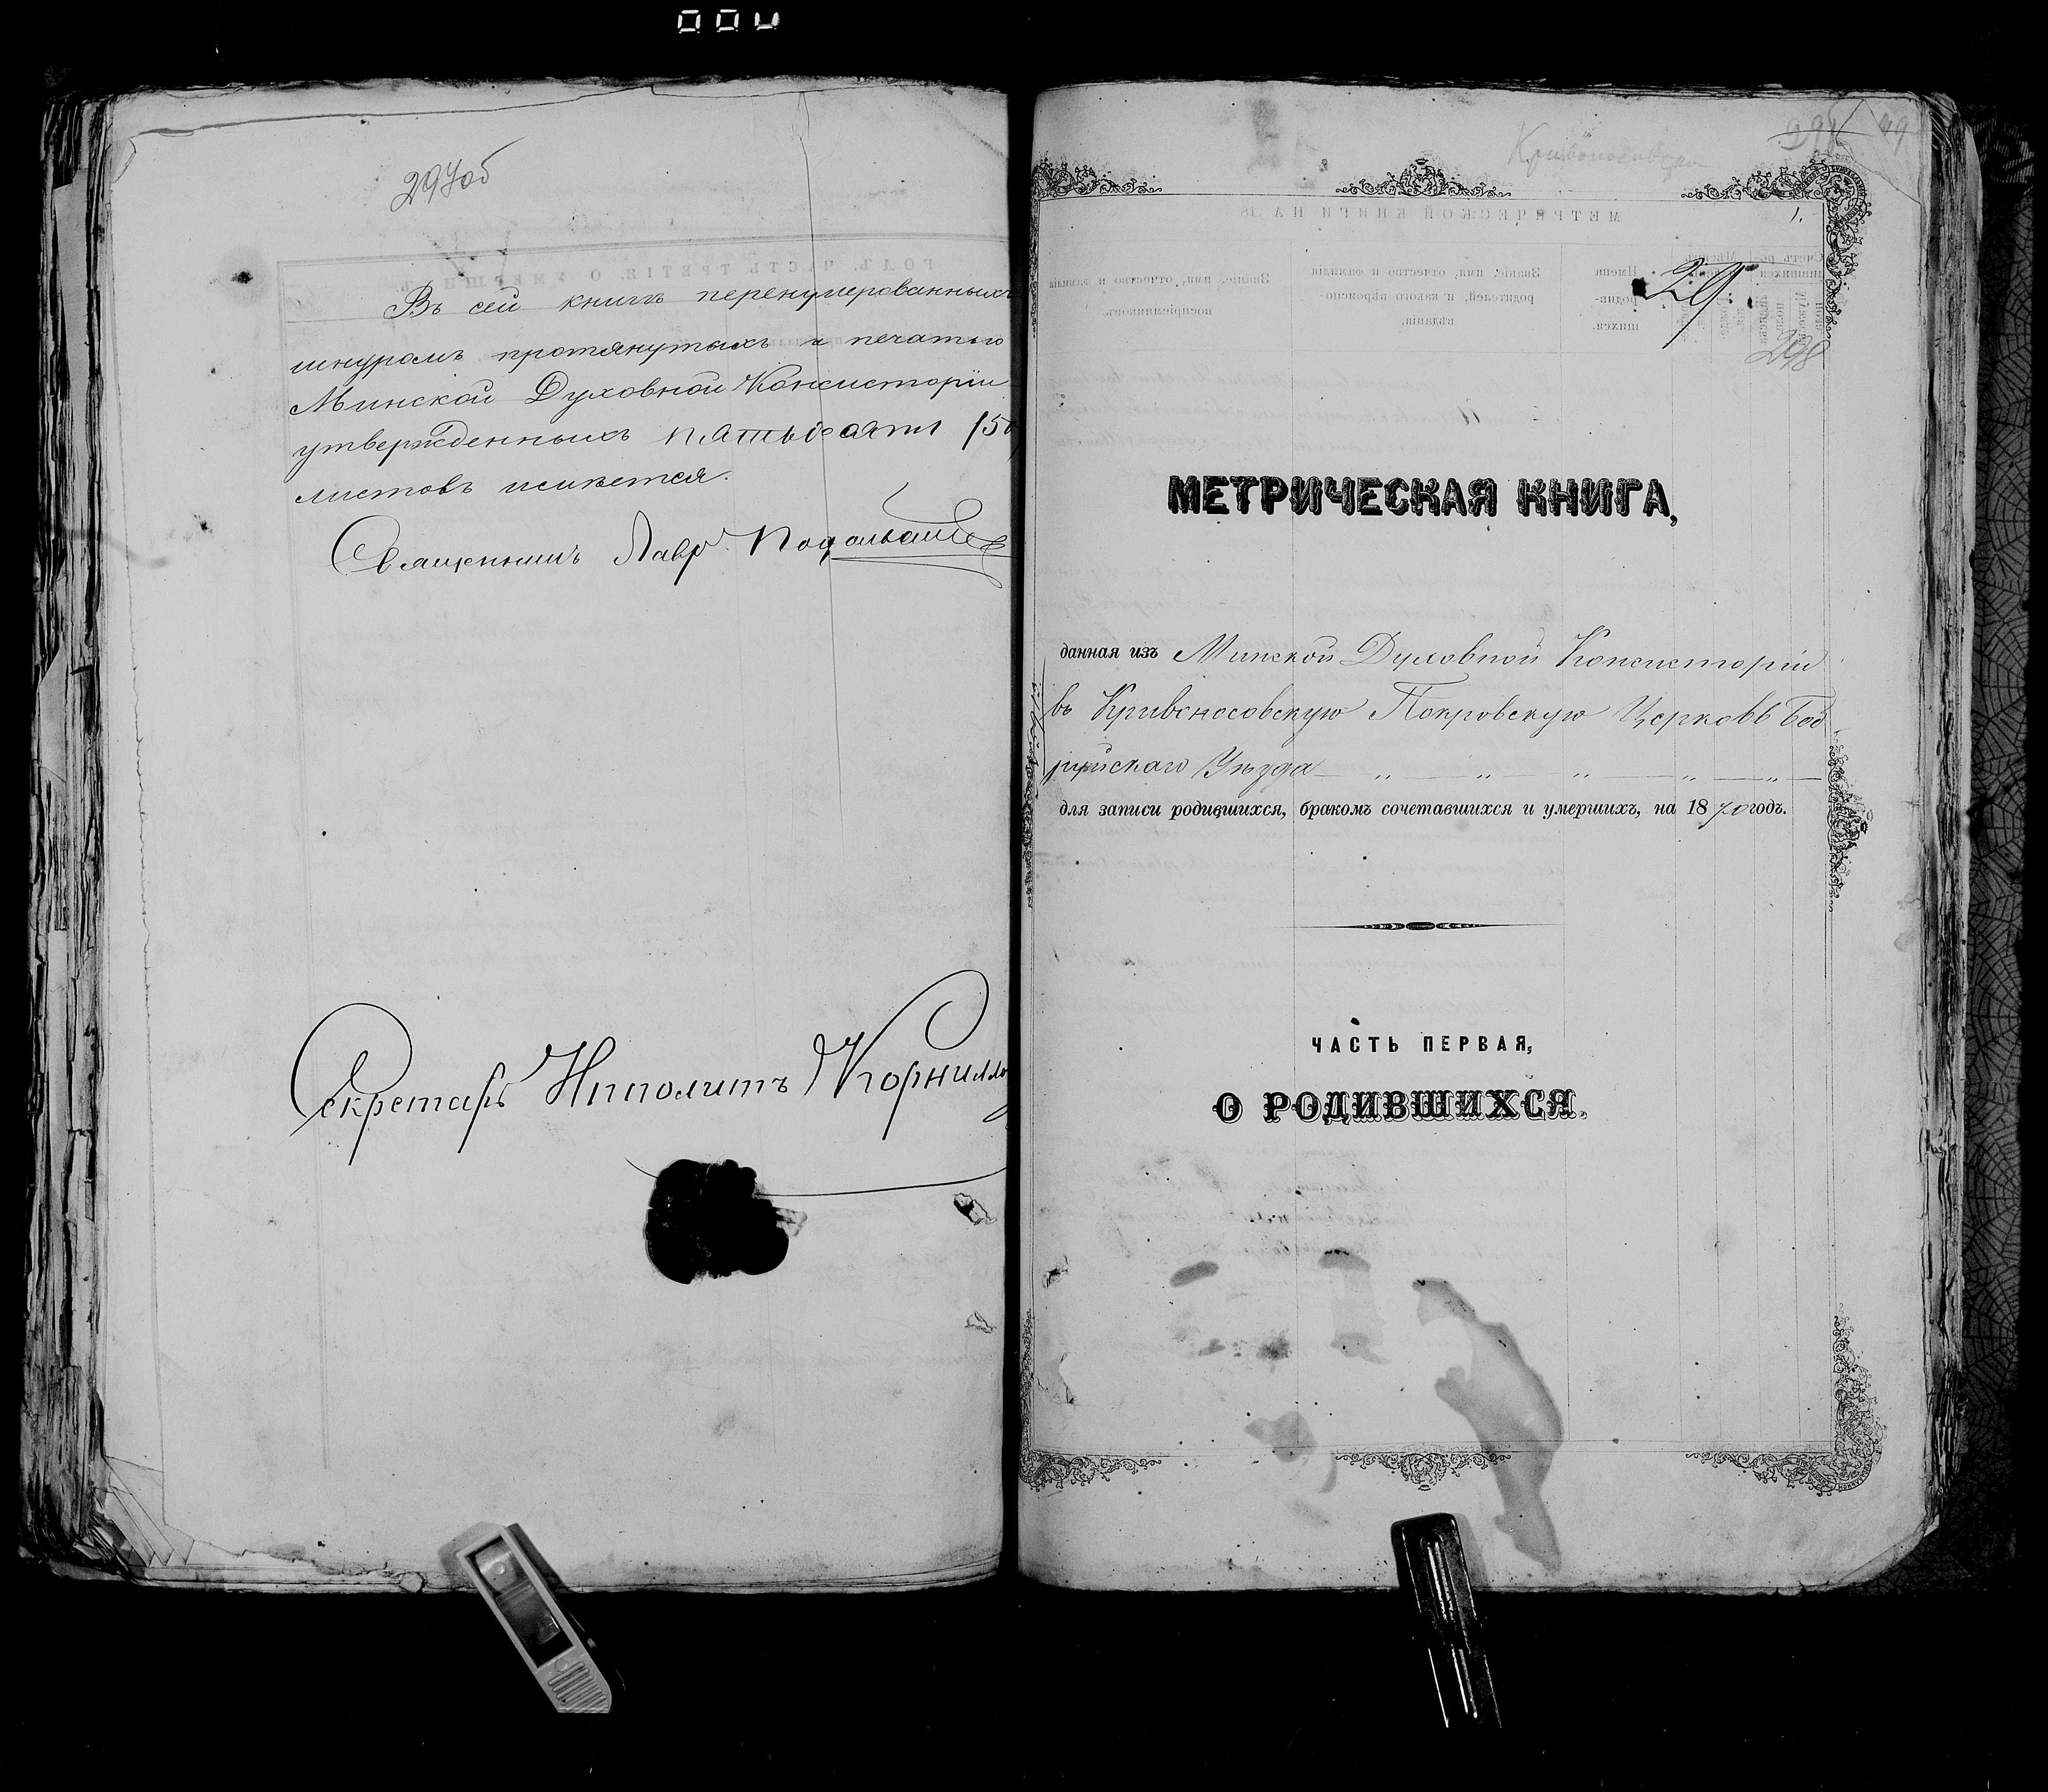 297об
Въ сей книгѣ перенумерованныхъ
шнуромъ протянутыхъ и печатью
Минской Духовной Консисторіи
утвержденныхъ пятьдесятъ /50/
листовъ имѣется.
Священникъ Лавр
Секретарь Ипполитъ Корнилло
1.
29.
298
МЕТРИЧЕСКАЯ КНИГА,
данная изъ Минской Духовной Консисторіи
въ Кривоносовскую Покровскую Церковь Боб
руйскаго Уѣзда
для записи родившихся, бракомъ сочетавшихся и умершихъ, на 1870 годъ.
ЧАСТЬ ПЕРВАЯ,
О РОДИВШИХСЯ.